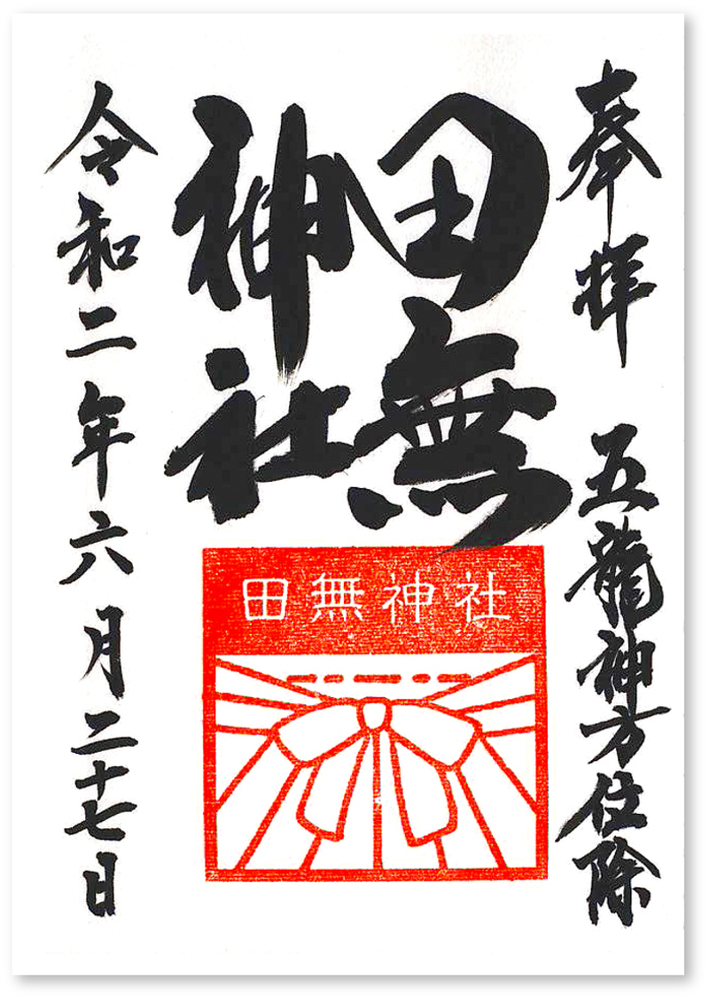 奉拝 五龍神方位除
田無
神社
令和二年六月二十七日
田無神社